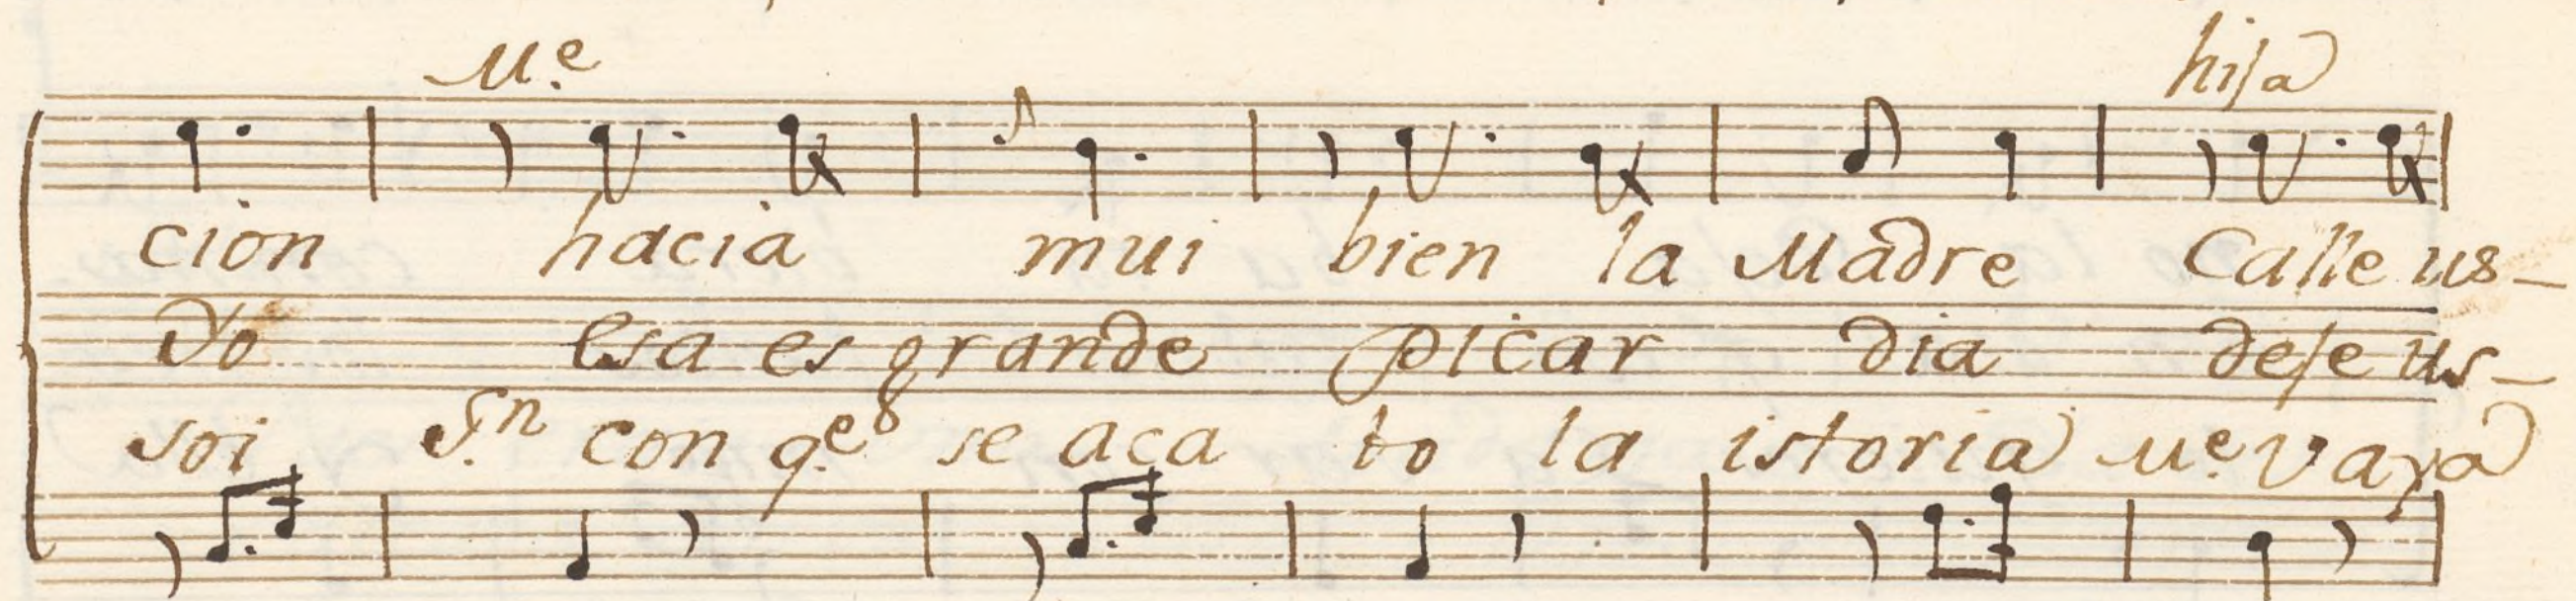 Me. hija
cion hacia mui bien la Madre Calle us-
Yo esa es grande picar dia deje us-
soi Sn. con qe. se aca to la istoria Me. vaya